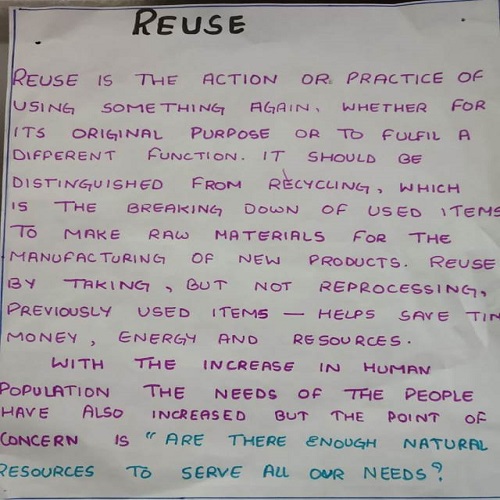 REUSE
REUSE IS THE ACTION OR PRACTICE OF
USING SOMETHING AGAIN, WHETHER FOR
ITS ORIGINAL PURPOSE OR TO FULFIL A
DIFFERENT FUNCTION. IT SHOULD BE
DISTINGUISHED FROM RECYCLING, WHICH
IS THE BREAKING DOWN OF USED ITEMS
TO MAKE RAW MATERIALS FOR THE
MANUFACTURING OF NEW PRODUCTS. REUSE
BY TAKING, BUT NOT REPROCESSING,
PREVIOUSLY USED ITEMS — HELPS SAVE
MONEY, ENERGY AND RESOURCES.
WITH THE INCREASE IN HUMAN
POPULATION THE NEEDS OF THE PEOPLE
HAVE ALSO INCREASED BUT THE POINT OF
CONCERN IS "ARE THERE ENOUGH NATURAL
RESOURCES TO SERVE ALL OUR NEEDS?